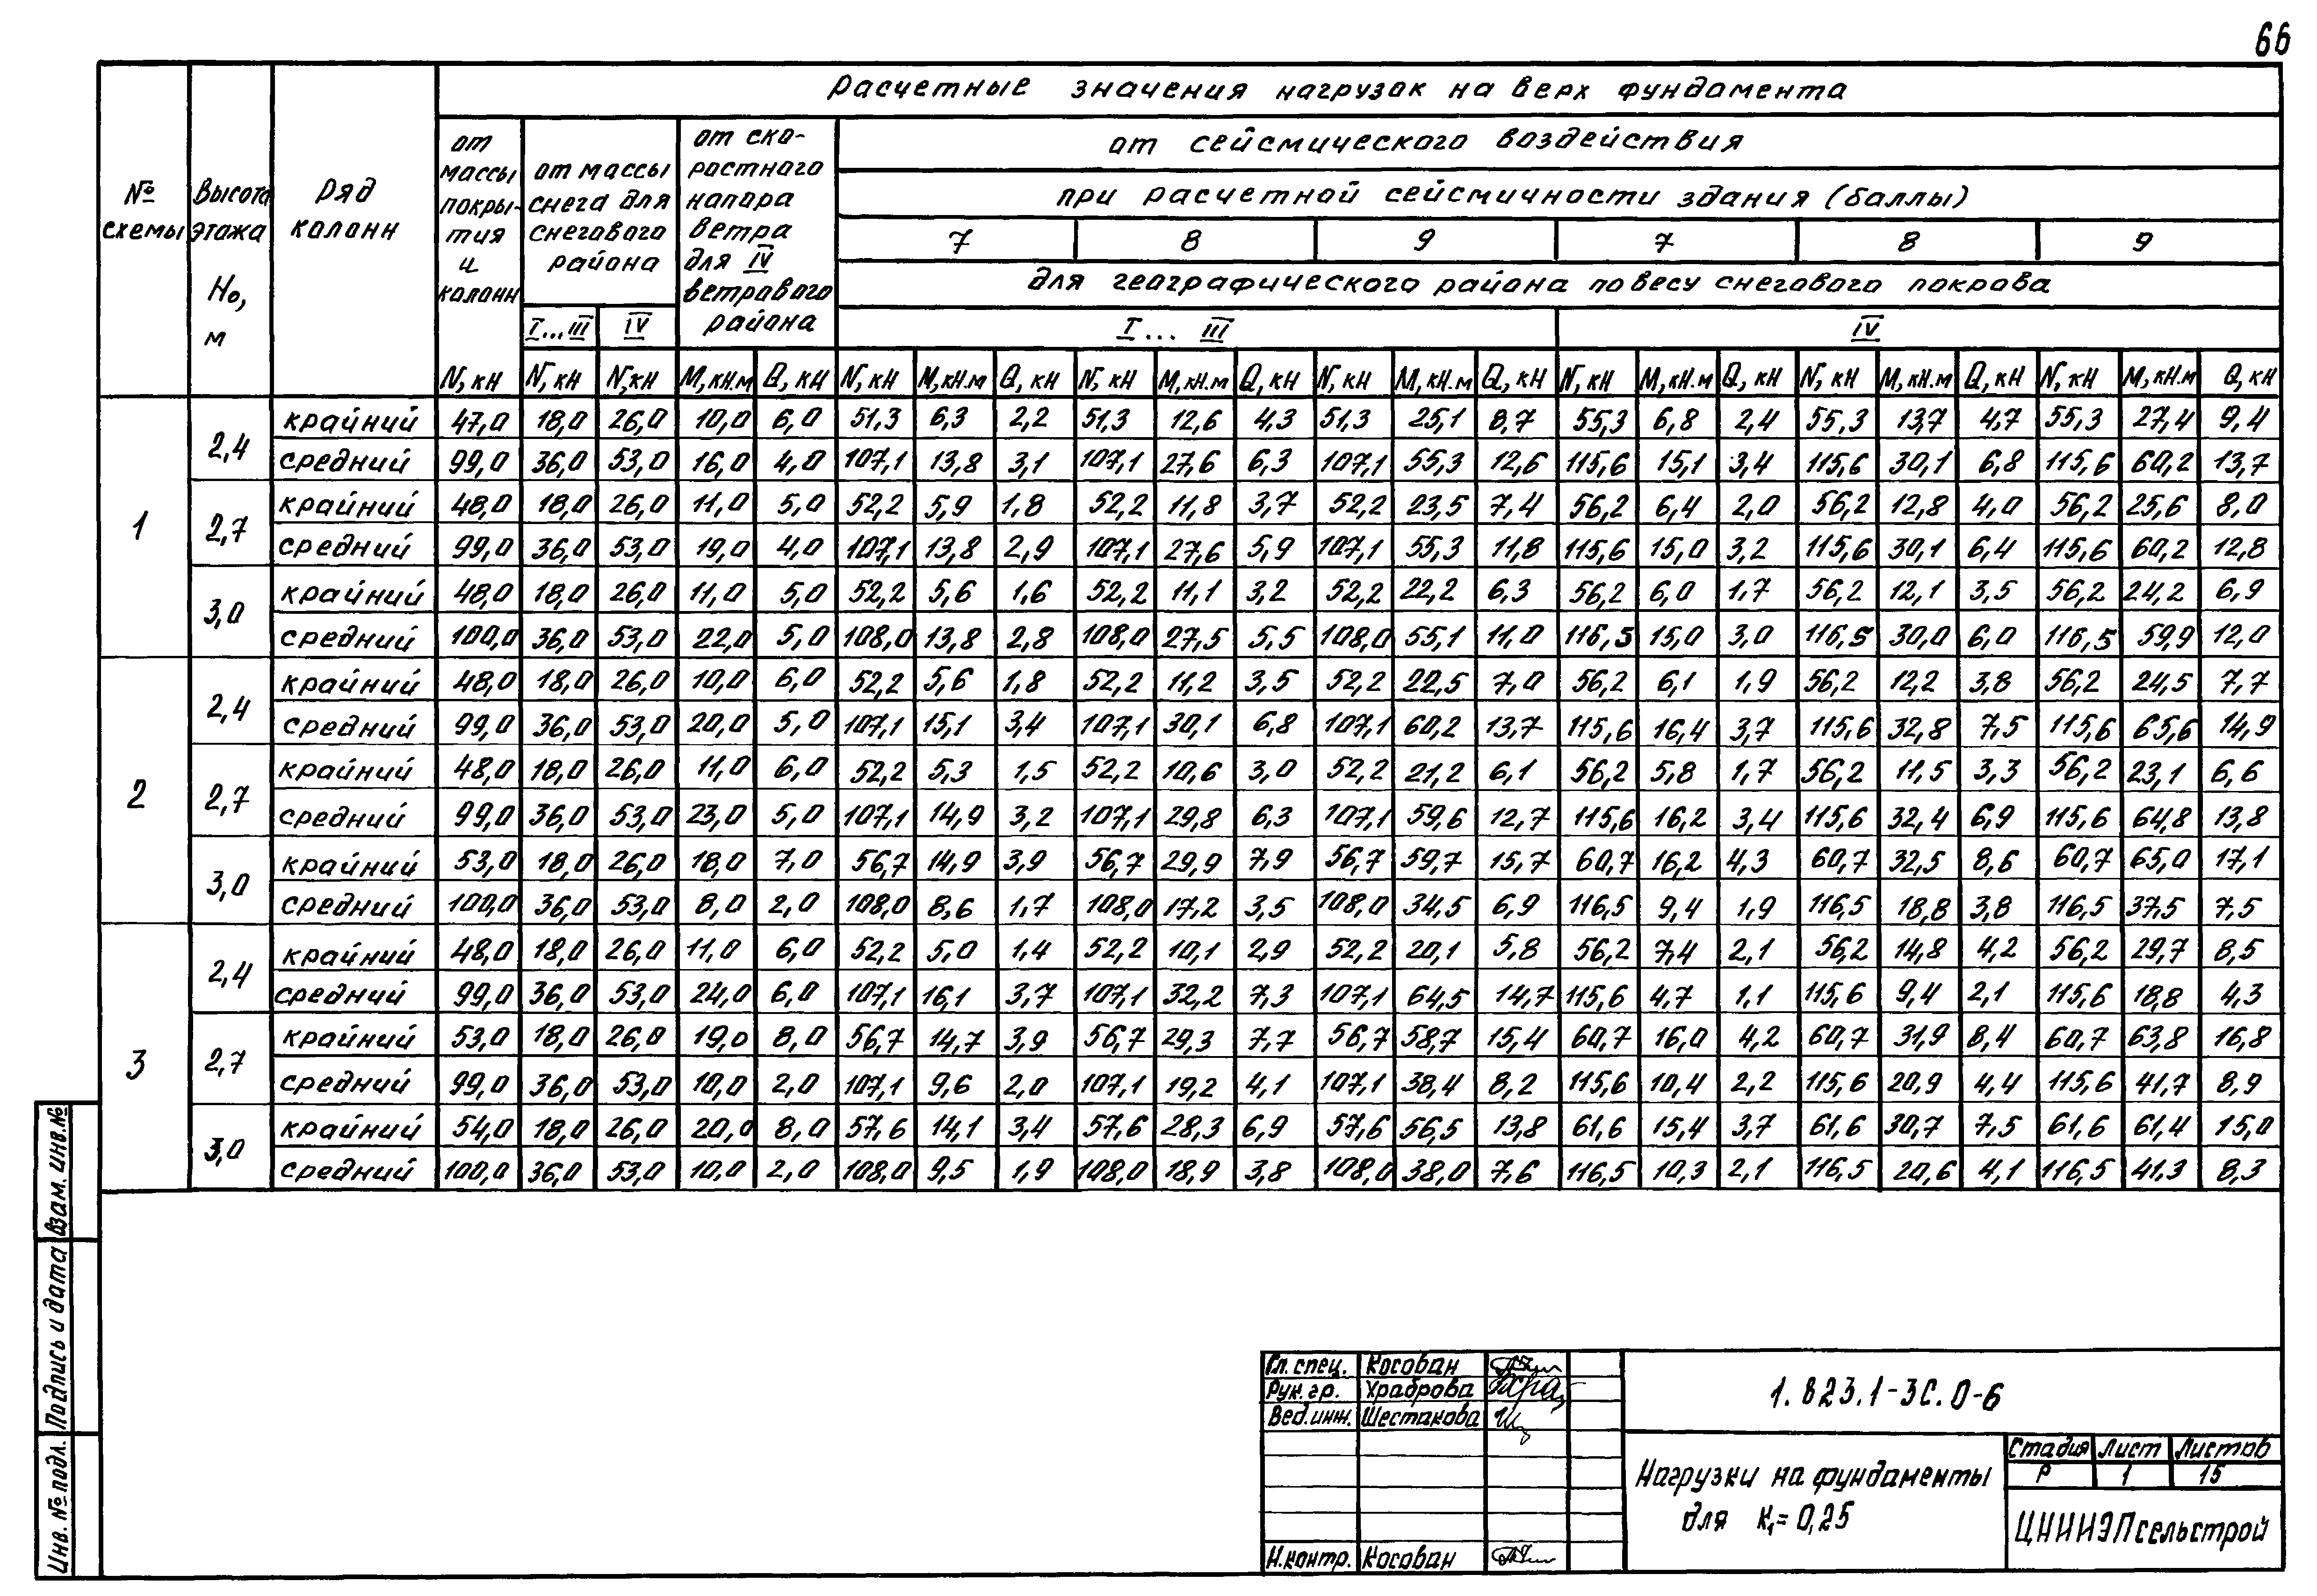 66
Расчетные значения нагрузок на верх фундамента
№ схемы
Высота этажа H₀, м
Ряд колонн
от массы покры-тия и колонн
от массы снега для снегового района
от ско-ростного напора ветра для IV ветрового района
от сейсмического воздействия
при расчетной сейсмичности здания (баллы)
7 8 9 7 8 9
для географического района по весу снегового покрова
I...III IV I... III IV
N, кН N, кН N, кН M, кН.м Q, кН N, кН M, кН.м Q, кН N, кН M, кН.м Q, кН N, кН M, кН.м Q, кН N, кН M, кН.м Q, кН N, кН M, кН.м Q, кН N, кН M, кН.м Q, кН
1
2,4
крайний 47,0 18,0 26,0 10,0 6,0 51,3 6,3 2,2 51,3 12,6 4,3 51,3 25,1 8,7 55,3 6,8 2,4 55,3 13,7 4,7 55,3 27,4 9,4
средний 99,0 36,0 53,0 16,0 4,0 107,1 13,8 3,1 107,1 27,6 6,3 107,1 55,3 12,6 115,6 15,1 3,4 115,6 30,1 6,8 115,6 60,2 13,7
2,7
крайний 48,0 18,0 26,0 11,0 5,0 52,2 5,9 1,8 52,2 11,8 3,7 52,2 23,5 7,4 56,2 6,4 2,0 56,2 12,8 4,0 56,2 25,6 8,0
средний 99,0 36,0 53,0 19,0 4,0 107,1 13,8 2,9 107,1 27,6 5,9 107,1 55,3 11,8 115,6 15,0 3,2 115,6 30,1 6,4 115,6 60,2 12,8
3,0
крайний 48,0 18,0 26,0 11,0 5,0 52,2 5,6 1,6 52,2 11,1 3,2 52,2 22,2 6,3 56,2 6,0 1,7 56,2 12,1 3,5 56,2 24,2 6,9
средний 100,0 36,0 53,0 22,0 5,0 108,0 13,8 2,8 108,0 27,5 5,5 108,0 55,1 11,0 116,5 15,0 3,0 116,5 30,0 6,0 116,5 59,9 12,0
2
2,4
крайний 48,0 18,0 26,0 10,0 6,0 52,2 5,6 1,8 52,2 11,2 3,5 52,2 22,5 7,0 56,2 6,1 1,9 56,2 12,2 3,8 56,2 24,5 7,7
средний 99,0 36,0 53,0 20,0 5,0 107,1 15,1 3,4 107,1 30,1 6,8 107,1 60,2 13,7 115,6 16,4 3,7 115,6 32,8 7,5 115,6 65,6 14,9
2,7
крайний 48,0 18,0 26,0 11,0 6,0 52,2 5,3 1,5 52,2 10,6 3,0 52,2 21,2 6,1 56,2 5,8 1,7 56,2 11,5 3,3 56,2 23,1 6,6
средний 99,0 36,0 53,0 23,0 5,0 107,1 14,9 3,2 107,1 29,8 6,3 107,1 59,6 12,7 115,6 16,2 3,4 115,6 32,4 6,9 115,6 64,8 13,8
3,0
крайний 53,0 18,0 26,0 18,0 7,0 56,7 14,9 3,9 56,7 29,9 7,9 56,7 59,7 15,7 60,7 16,2 4,3 60,7 32,5 8,6 60,7 65,0 17,1
средний 100,0 36,0 53,0 8,0 2,0 108,0 8,6 1,7 108,0 17,2 3,5 108,0 34,5 6,9 116,5 9,4 1,9 116,5 18,8 3,8 116,5 37,5 7,5
3
2,4
крайний 48,0 18,0 26,0 11,0 6,0 52,2 5,0 1,4 52,2 10,1 2,9 52,2 20,1 5,8 56,2 7,4 2,1 56,2 14,8 4,2 56,2 29,7 8,5
средний 99,0 36,0 53,0 24,0 6,0 107,1 16,1 3,7 107,1 32,2 7,3 107,1 64,5 14,7 115,6 4,7 1,1 115,6 9,4 2,1 115,6 18,8 4,3
2,7
крайний 53,0 18,0 26,0 19,0 8,0 56,7 14,7 3,9 56,7 29,3 7,7 56,7 58,7 15,4 60,7 16,0 4,2 60,7 31,9 8,4 60,7 63,8 16,8
средний 99,0 36,0 53,0 10,0 2,0 107,1 9,6 2,0 107,1 19,2 4,1 107,1 38,4 8,2 115,6 10,4 2,2 115,6 20,9 4,4 115,6 41,7 8,9
3,0
крайний 54,0 18,0 26,0 20,0 8,0 57,6 14,1 3,4 57,6 28,3 6,9 57,6 56,5 13,8 61,6 15,4 3,7 61,6 30,7 7,5 61,6 61,4 15,0
средний 100,0 36,0 53,0 10,0 2,0 108,0 9,5 1,9 108,0 18,9 3,8 108,0 38,0 7,6 116,5 10,3 2,1 116,5 20,6 4,1 116,5 41,3 8,3
Взам. инв.№
Подпись и дата
Инв. № подл.
Гл. спец. Косован
Рук. гр. Храброва
Вед. инж. Шестакова
Н.контр. Косован
1.823.1-3С.0-6
Нагрузки на фундаменты
для К₁= 0,25
Стадия Лист Листов
Р 1 15
ЦНИИЭПсельстрой